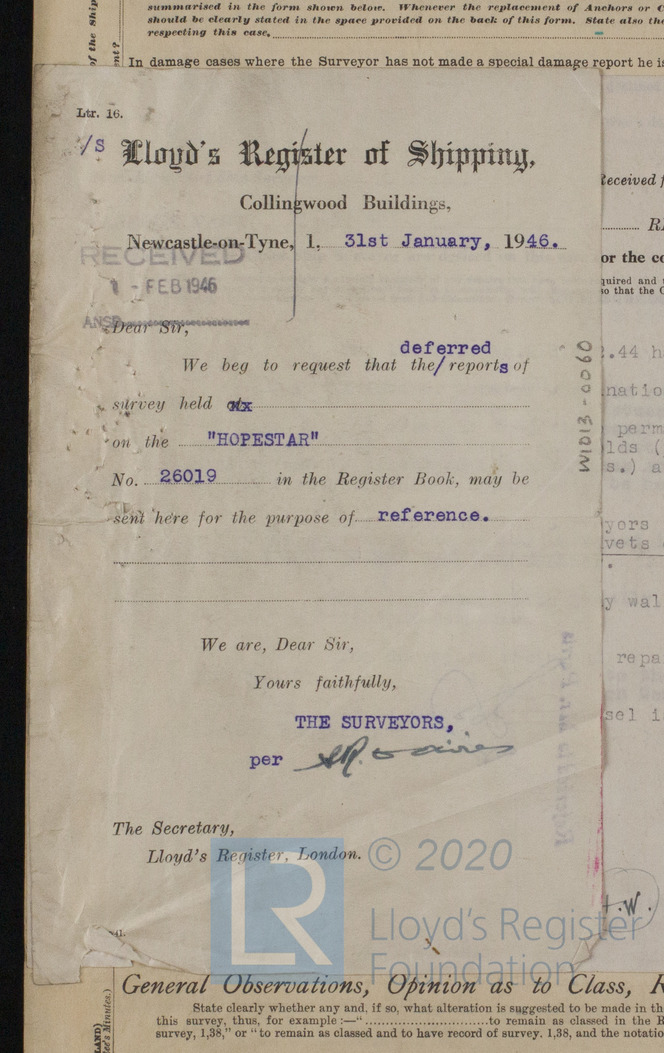 summarised in the form shown below. Whenever the replacement of Anchors or C
should be clearly stated in the space provided on the back of this form. State also the
respecting this case,
In damage cases where the Surveyor has not made a special damage report he is
of the Ship
ent?
Ltr. 16.
/S Lloyd's Register of Shipping,
Collingwood Buildings,
Newcastle-on-Tyne, 1, 31st January, 1946.
RECEIVED
1 - FEB 1946
Dear Sir,
deferred
We beg to request that the/ reports of
survey held
on the "HOPESTAR"
No. 26019 in the Register Book, may be
sent here for the purpose of reference.
We are, Dear Sir,
Yours faithfully,
THE SURVEYORS,
per
The Secretary,
Lloyd's Register, London.
W1013-0060
Received f
or the co
quired and
so that the C
.44 h
natio
perm
lds (
s.) a
yors
vets
y wal
repa
sel i
LR
© 2020
Lloyd's Register
Foundation
General Observations, Opinion as to Class, R
State clearly whether any and, if so, what alteration is suggested to be made in th
this survey, thus, for example :—" to remain as classed in the R
survey, 1,38," or " to remain as classed and to have record of survey. 1,38, and the notatio